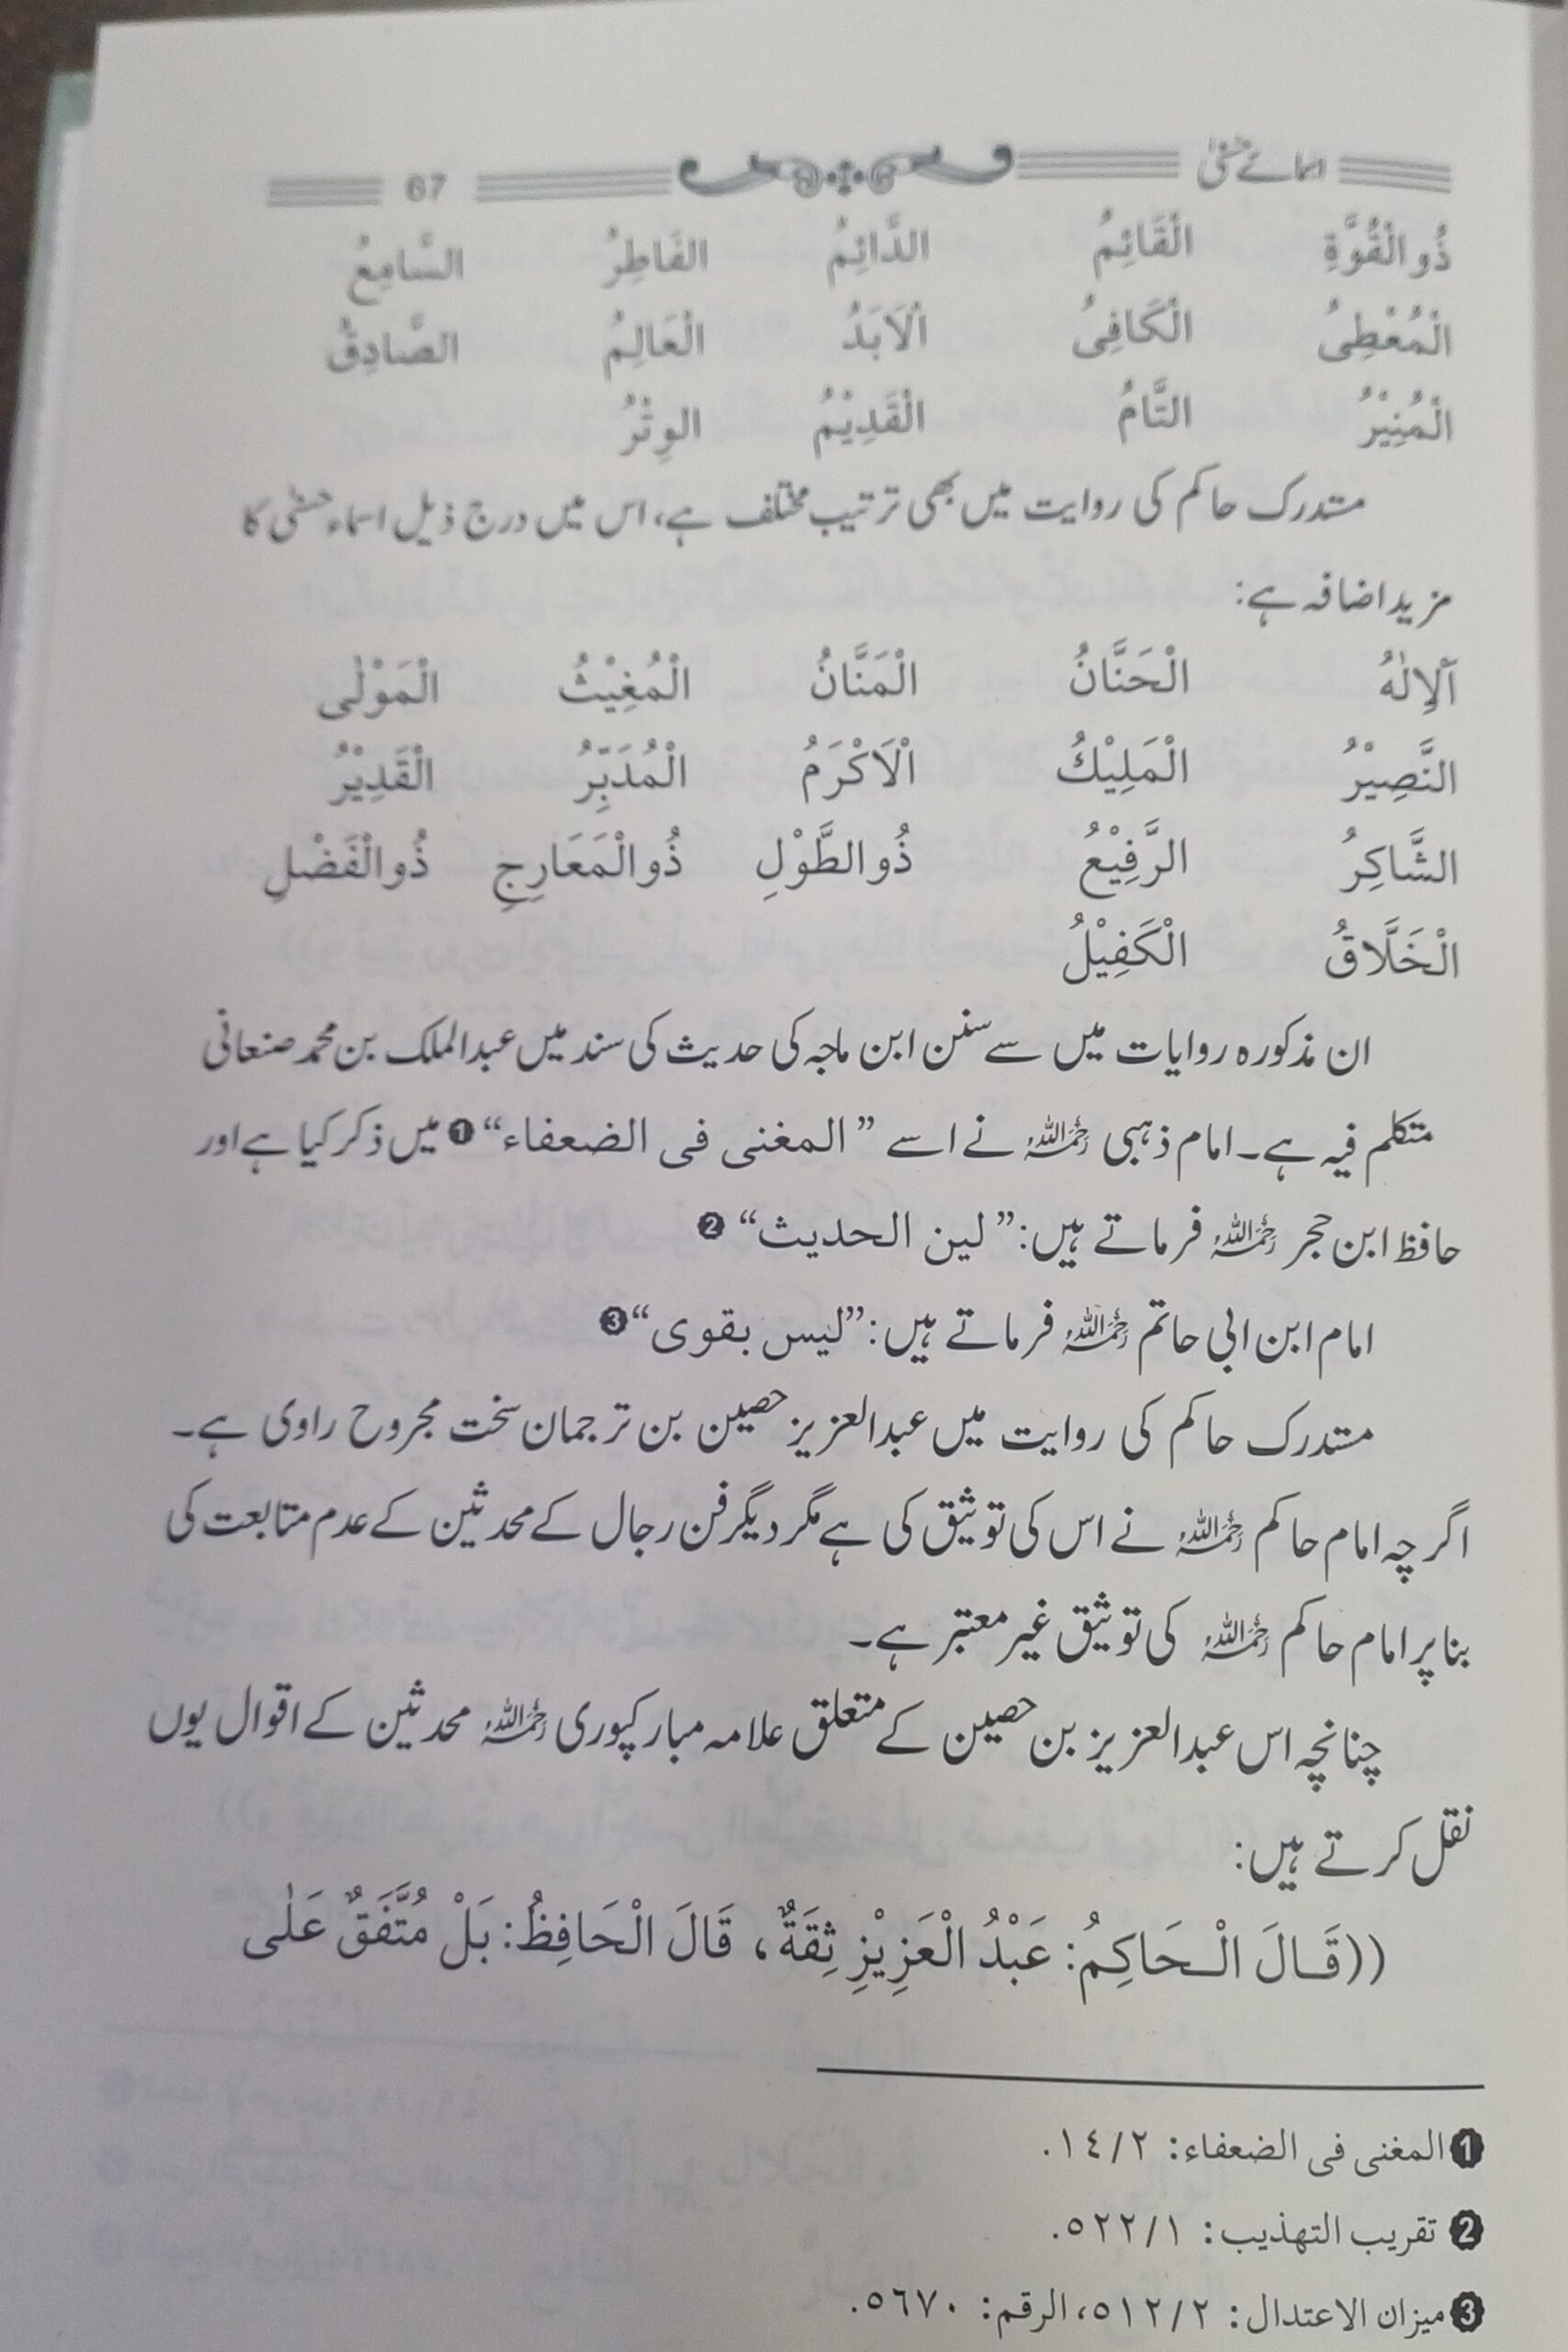 اسمائے حسنیٰ 67
ذُوالْقُوَّةِ الْقَائِمُ الدَّائِمُ الفَاطِرُ السَّامِعُ
الْمُعْطِیُ الْكَافِیُ الْاَبَدُ الْعَالِمُ الصَّادِقُ
الْمُنِيْرُ التَّامُ الْقَدِيْمُ الوِتْرُ
مستدرک حاکم کی روایت میں بھی ترتیب مختلف ہے، اس میں درج ذیل اسماء حسنٰی کا
مزید اضافہ ہے:
اَلْاِلٰهُ الْحَنَّانُ الْمَنَّانُ الْمُغِيْثُ الْمَوْلٰی
النَّصِيْرُ الْمَلِيْكُ الْاَكْرَمُ الْمُدَبِّرُ الْقَدِيْرُ
الشَّاكِرُ الرَّفِيْعُ ذُوالطَّوْلِ ذُوالْمَعَارِجِ ذُوالْفَضْلِ
الْخَلَّاقُ الْكَفِيْلُ
ان مذکورہ روایات میں سے سنن ابن ماجہ کی حدیث کی سند میں عبدالملک بن محمد صنعانی
متکلم فیہ ہے۔ امام ذہبی رحمہ اللہ نے اسے ”المغنی فی الضعفاء“ ❶ میں ذکر کیا ہے اور
حافظ ابن حجر رحمہ اللہ فرماتے ہیں: ”لین الحدیث“ ❷
امام ابن ابی حاتم رحمہ اللہ فرماتے ہیں: ”لیس بقوی“ ❸
مستدرک حاکم کی روایت میں عبدالعزیز حصین بن ترجمان سخت مجروح راوی ہے۔
اگرچہ امام حاکم رحمہ اللہ نے اس کی توثیق کی ہے مگر دیگر فن رجال کے محدثین کے عدم متابعت کی
بنا پر امام حاکم رحمہ اللہ کی توثیق غیر معتبر ہے۔
چنانچہ اس عبدالعزیز بن حصین کے متعلق علامہ مبارکپوری رحمہ اللہ محدثین کے اقوال یوں
نقل کرتے ہیں:
((قَالَ الْحَاكِمُ: عَبْدُ الْعَزِيْزِ ثِقَةٌ، قَالَ الْحَافِظُ: بَلْ مُتَّفَقٌ عَلٰى
❶ المغنی فی الضعفاء: ١٤/٢.
❷ تقریب التهذیب: ٥٢٢/١.
❸ میزان الاعتدال: ٥١٢/٢، الرقم: ٥٦٧٠.